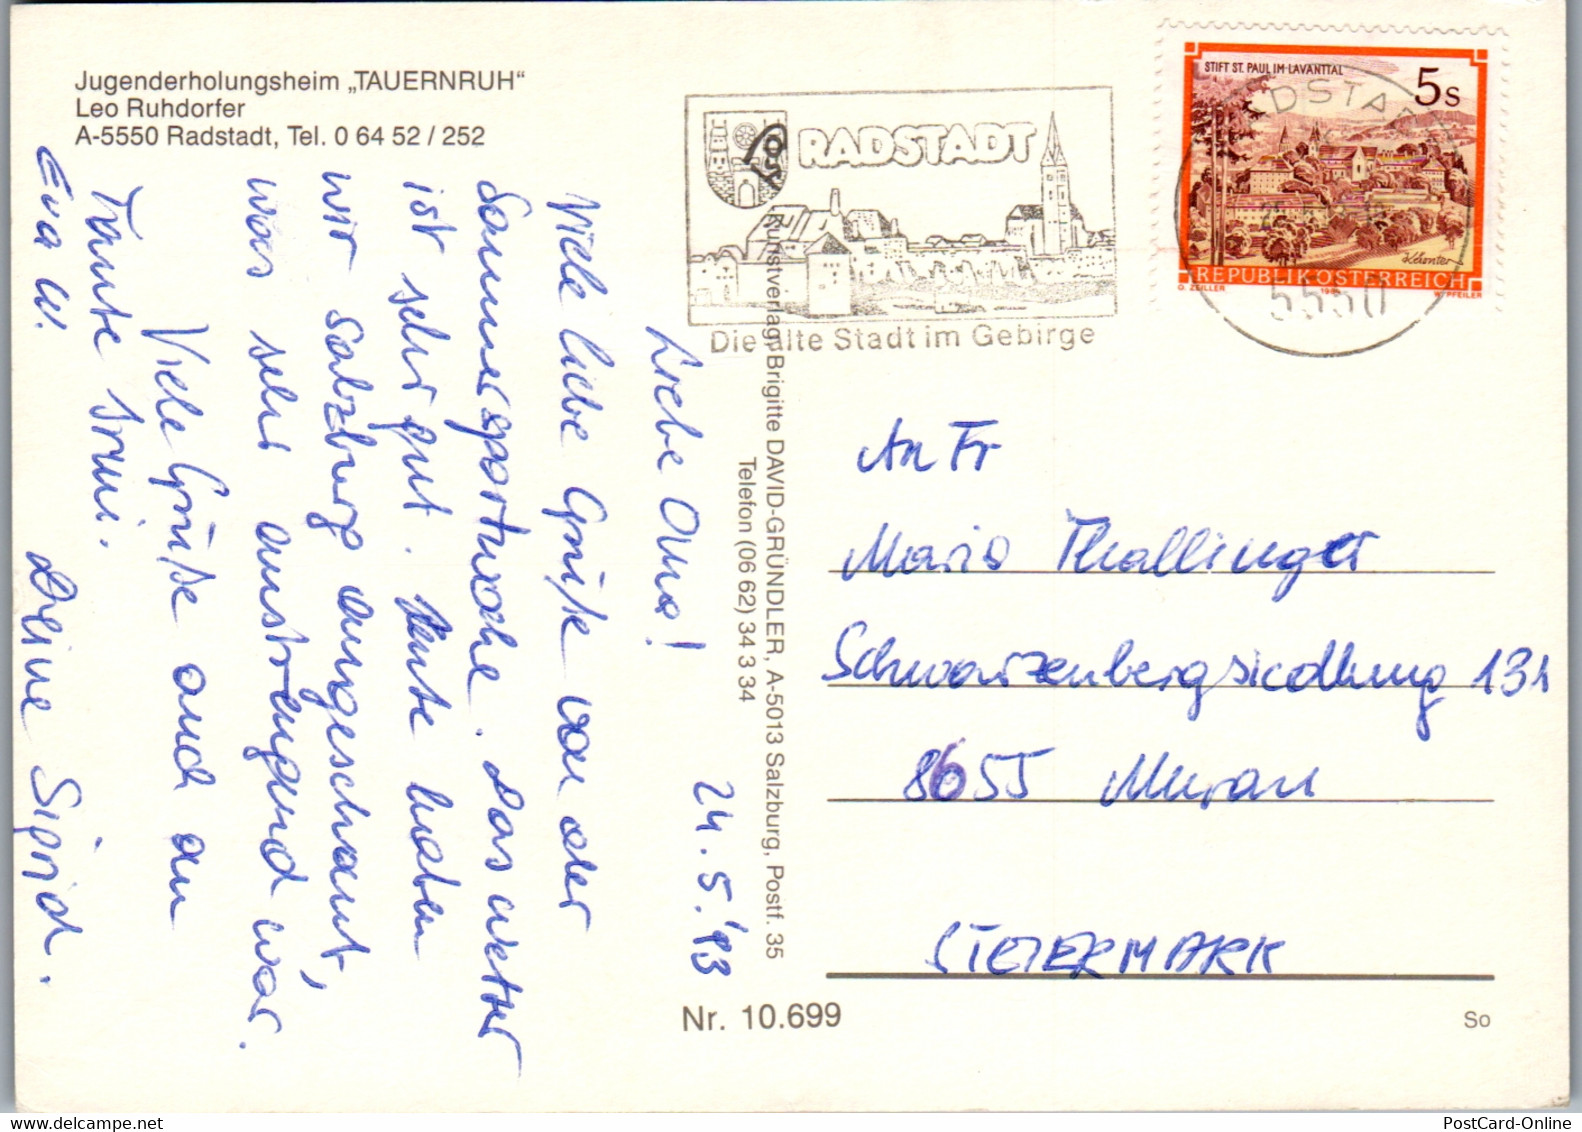 Jugenderholungsheim „TAUERNRUH“
Leo Ruhdorfer
A-5550 Radstadt, Tel. 0 64 52 / 252
RADSTADT
Die alte Stadt im Gebirge
STIFT ST. PAUL IM LAVANTTAL
5 S
REPUBLIK ÖSTERREICH
O. ZEILLER
W. PFEILER
5550
24. 5. '93
Liebe Oma!
Viele liebe Grüße von der
Sommersportwoche. Das Wetter
ist sehr gut. Heute haben
wir Salzburg angeschaut,
was sehr anstrengend war.
Viele Grüße auch an
Tante
Eva W.
Deine Sigrid.
Kunstverlag Brigitte DAVID-GRÜNDLER, A-5013 Salzburg, Postf. 35
Telefon (06 62) 34 3 34
An Fr
Maria Thallinger
Schwarzenbergsiedlung 131
8655 Murau
STEIERMARK
Nr. 10.699
So
PostCard-Online